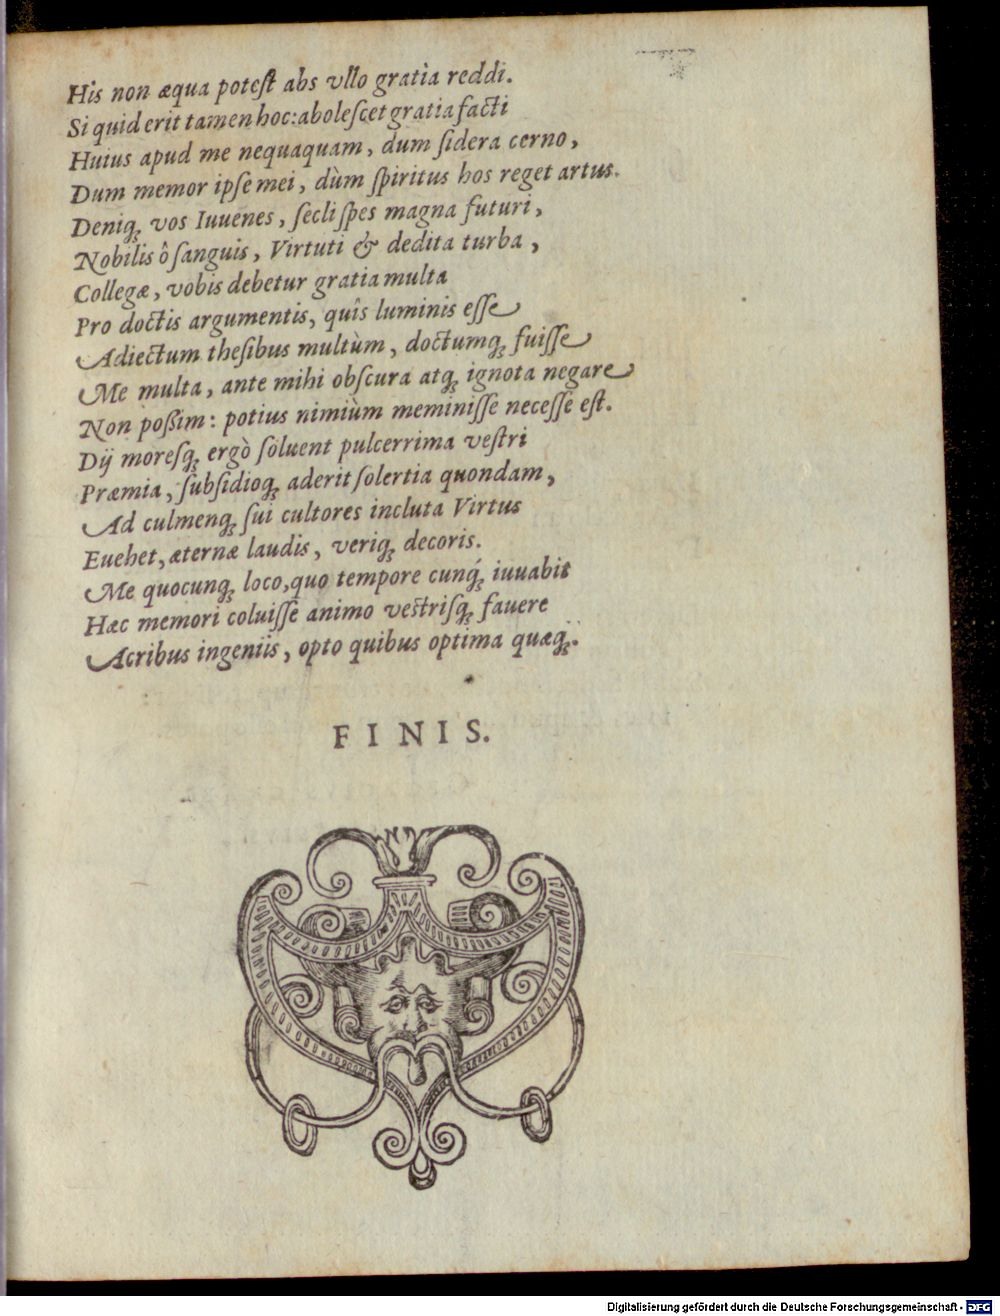 His non æqua poteſt abs vllo gratia reddi.
Si quid erit tamen hoc: aboleſcet gratia facti
Huius apud me nequaquam, dum ſidera cerno,
Dum memor ipſe mei, dùm ſpiritus hos reget artus.
Deniq́; vos Iuuenes, ſecli ſpes magna futuri,
Nobilis ô ſanguis, Virtuti & dedita turba,
Collegæ, vobis debetur gratia multa
Pro doctis argumentis, quîs luminis eſſe
Adiectum theſibus multùm, doctumq́; fuiſſe
Me multa, ante mihi obſcura atq́; ignota negare
Non poßim: potius nimiùm meminiſſe neceſſe eſt.
Dij moresq́; ergò ſoluent pulcerrima veſtri
Præmia, ſubſidioq́; aderit ſolertia quondam,
Ad culmenq́; ſui cultores incluta Virtus
Euehet, æternæ laudis, veriq́; decoris.
Me quocunq́; loco, quo tempore cunq́; iuuabit
Hæc memori coluiſſe animo veſtrisq́; fauere
Acribus ingeniis, opto quibus optima quæq́;.
FINIS.
Digitalisierung gefördert durch die Deutsche Forschungsgemeinschaft - DFG